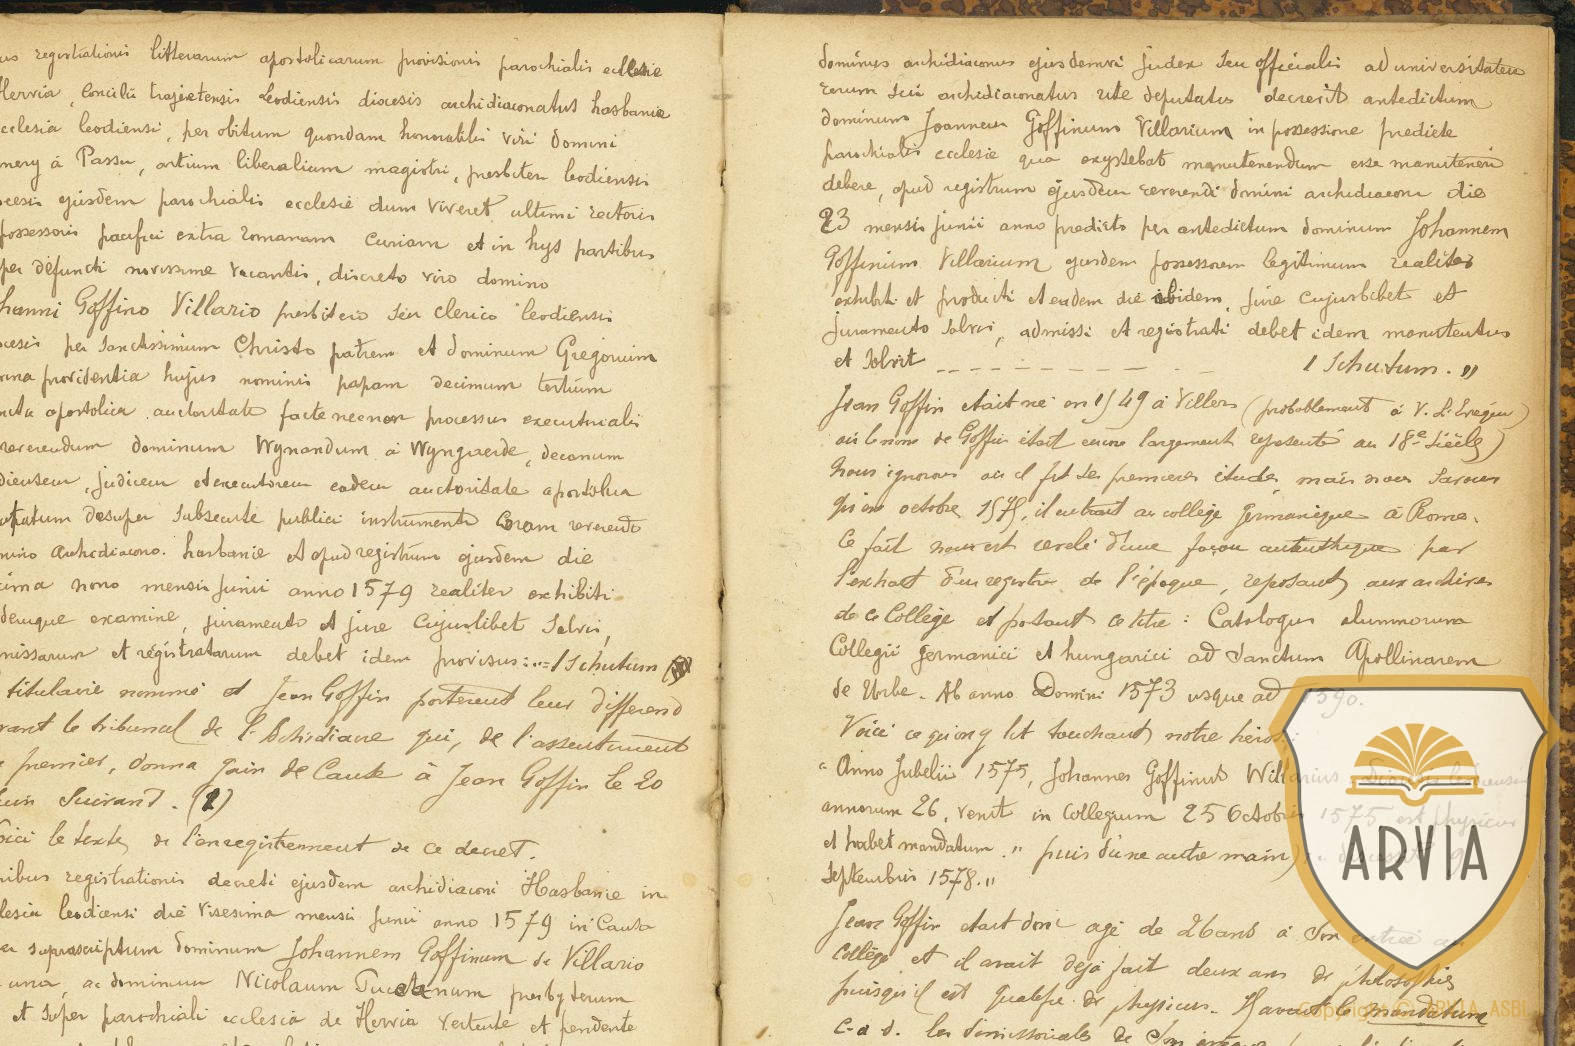 registrationis litterarum apostolicarum provisionis parochialis ecclesie
Hervia, concilii trajectensis leodiensis diocesis archidiaconatus hasbanie
ecclesia leodiensi, per obitum quondam honorabilis viri domini
à Passu, artium liberalium magistri, presbiteri leodiensis
ejusdem parochialis ecclesie dum viveret ultimi rectoris
possessoris pacifici extra romanam curiam et in hys partibus
per defuncti novissime vacantis, discreto viro domino
Goffino Villario presbitero seu clerico leodiensis
per sanctissimum Christo patrem et dominum Gregorium
providentia hujus nominis papam decimum tertium
apostolica auctoritate facte necnon processus executorialis
reverendum dominum Wynandum à Wyngaerde, decanum
judicem et executorem eadem auctoritate apostolica
desuper subsecute publici instrumenti coram reverendo
Archidiacono hasbanie et apud registrum ejusdem die
nono mensis junii anno 1579 realiter exhibiti
denuque examine, juramento et jure cujuslibet salvis,
et registratarum debet idem provisus :..= 1 Schutum
titulaire nommé et Jean Goffin portèrent leur différend
le tribunal de l'Archidiacre qui, de l'assentiment
premier, donna gain de cause à Jean Goffin le 20
suivant. (2)
le texte de l'enregistrement de ce decret.
registrationis decreti ejusdem archidiaconi Hasbanie in
leodiensi die visesima mensis junii anno 1579 in causa
suprascriptum dominum Johannem Goffinum de Villario
una, ac dominum Nicolaum presbyterum
et super parochiali ecclesia de Hervia vertente et pendente
dominus archidiaconus ejusdemvi judex seu officialis ad universitatem
rerum sui archidiaconatus rite deputatus decrevit antedictum
dominum Joannem Goffinum Villarium in possessione predicte
parochialis ecclesie qua exystebat manutenendum esse manuteneri
debere, apud registrum ejusdem reverendi domini archidiaconi die
23 mensis junii anno predicto per antedictum dominum Johannem
Goffinum Villarium ejusdem possessorem legitimum realiter
exhibiti et producti et eadem die ibidem, jure cujuslibet et
juramento salvis, admissi et registrati debet idem manutentus
et solvit _ _ _ _ _ _ _ _ _ _ 1 Schutum. "
Jean Goffin était né en 1549 à Villers (probablement à V. L'Evêque)
où le nom de Goffin était encore largement representé au 18e siècle)
Nous ignorons où il fit ses premières études, mais nous savons
qu'en octobre 1575, il entrait au collège germanique à Rome.
Ce fait nous est revelé d'une façon authentique par
l'extrait d'un registre de l'époque, reposant aux archives
de ce Collège et portant ce titre : Catalogus alumnorum
Collegii germanici et hungarici ad Sanctum Apollinarem
de Urbe. Ab anno Domini 1573 usque ad 1590.
Voici ce qu'on y lit touchant notre héros :
"Anno Jubelii 1575, Johannes Goffinus Willarius
annorum 26, venit in Collegium 25 Octobris 1575 est physicus
et habet mandatum." puis d'une autre main)
septembris 1578."
Jean Goffin etait donc agé de 26 ans à son entrée au
collège et il avait déjà fait deux ans de philosophie
puisqu'il est qualifié de physicus. Il avait le mandatum
c-a d. les dimissoriales de son
ARVIA
Copyright © ARVIA ASBL